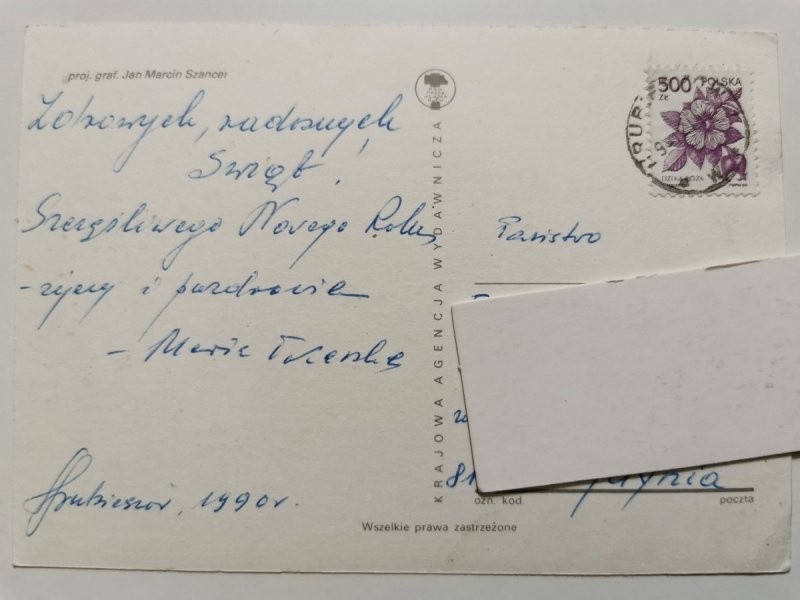 proj. graf. Jan Marcin Szancer
Zdrowych, radosnych
Świąt!
Szczęśliwego Nowego Roku
- życzy i pozdrawia
- Maria
Hrubieszów, 1990r.
KRAJOWA AGENCJA WYDAWNICZA
500
ZŁ
POLSKA
DZIKA RÓŻA
Państwo
81
Gdynia
ozn. kod.
poczta
Wszelkie prawa zastrzeżone